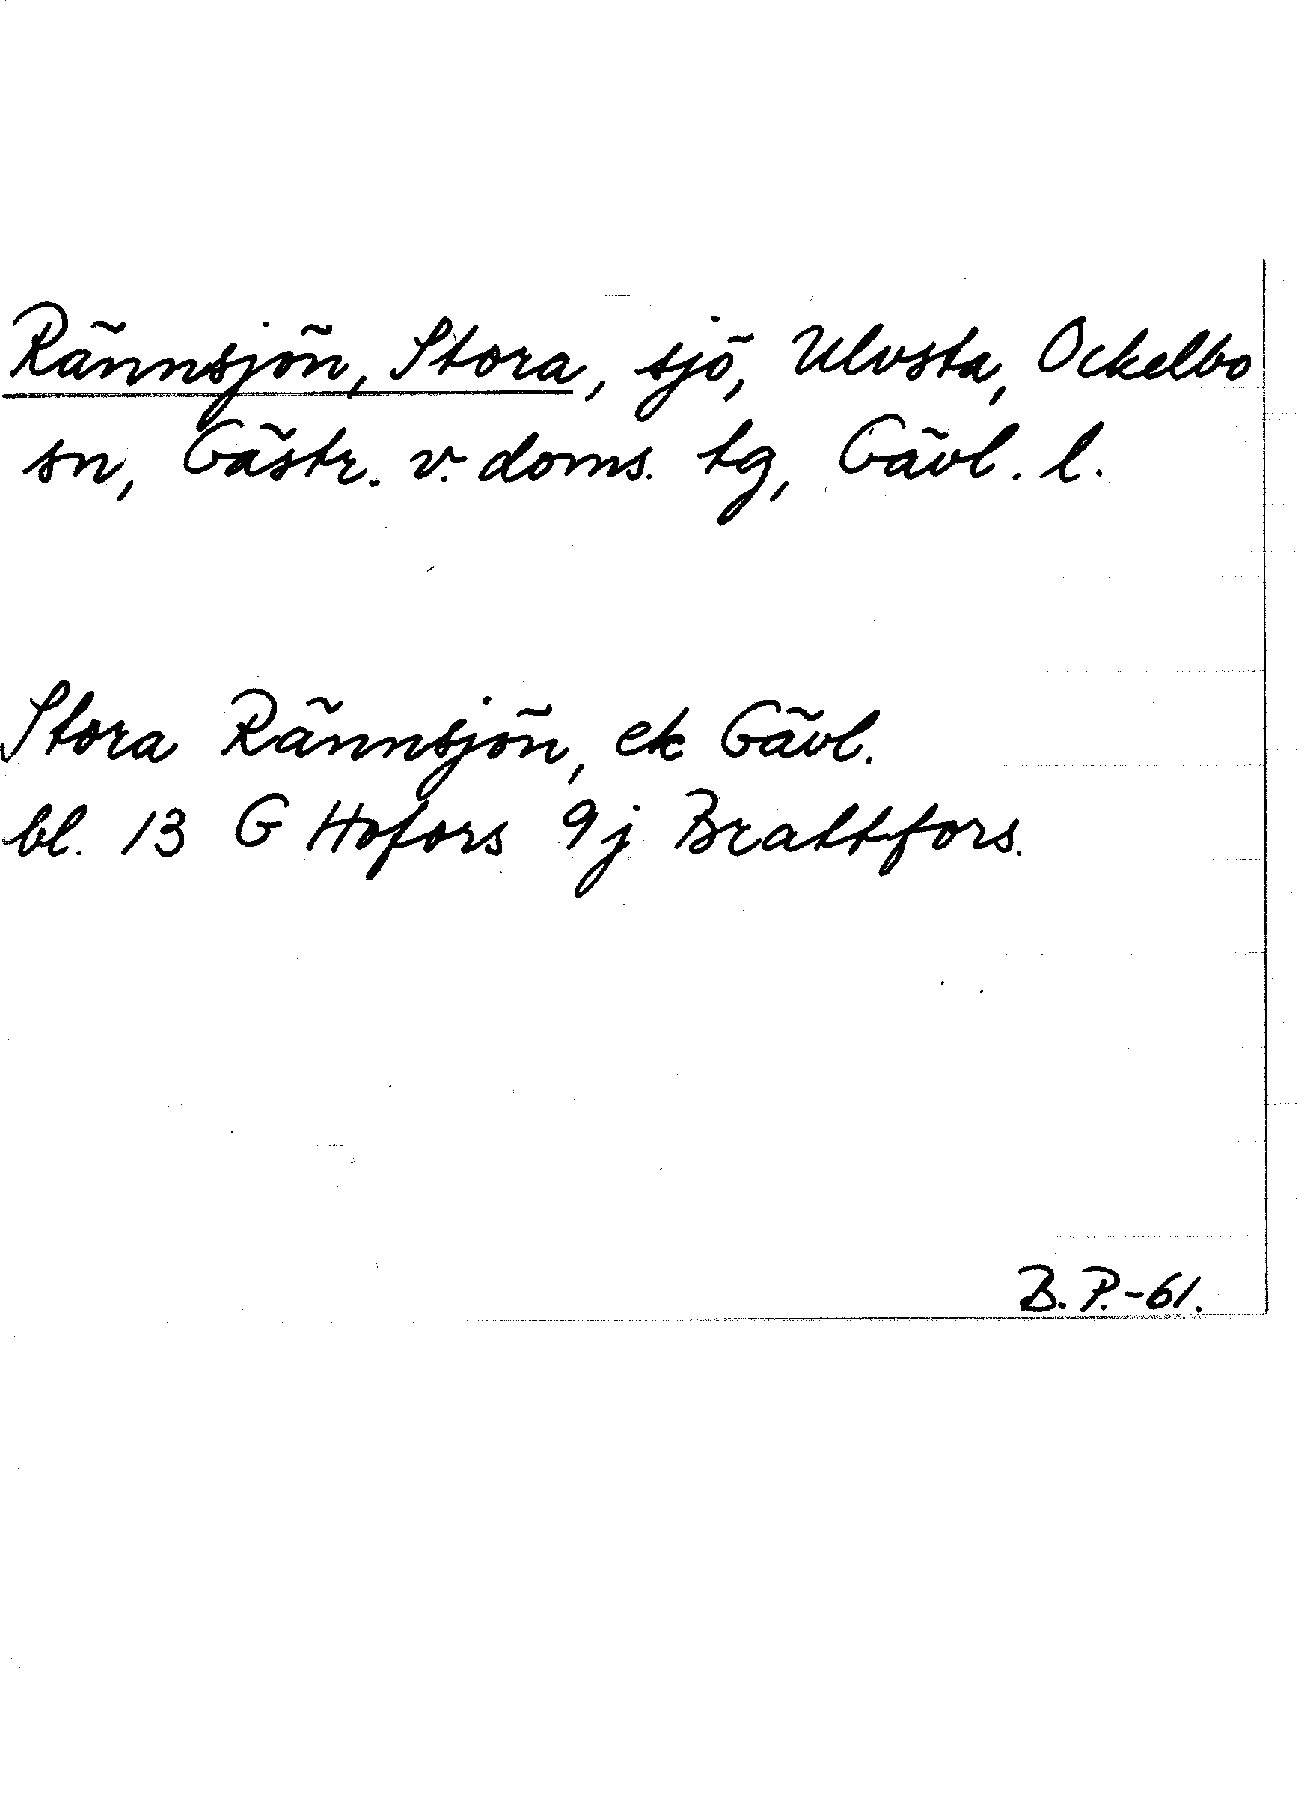 Rännsjön, Stora, sjö, Ulvsta, Ockelbo
sn, Gästr. v. doms. tg, Gävl. l.
Stora Rännsjön, ek Gävl.
bl. 13 G Hofors 9j Brattfors.
B. P. -61.